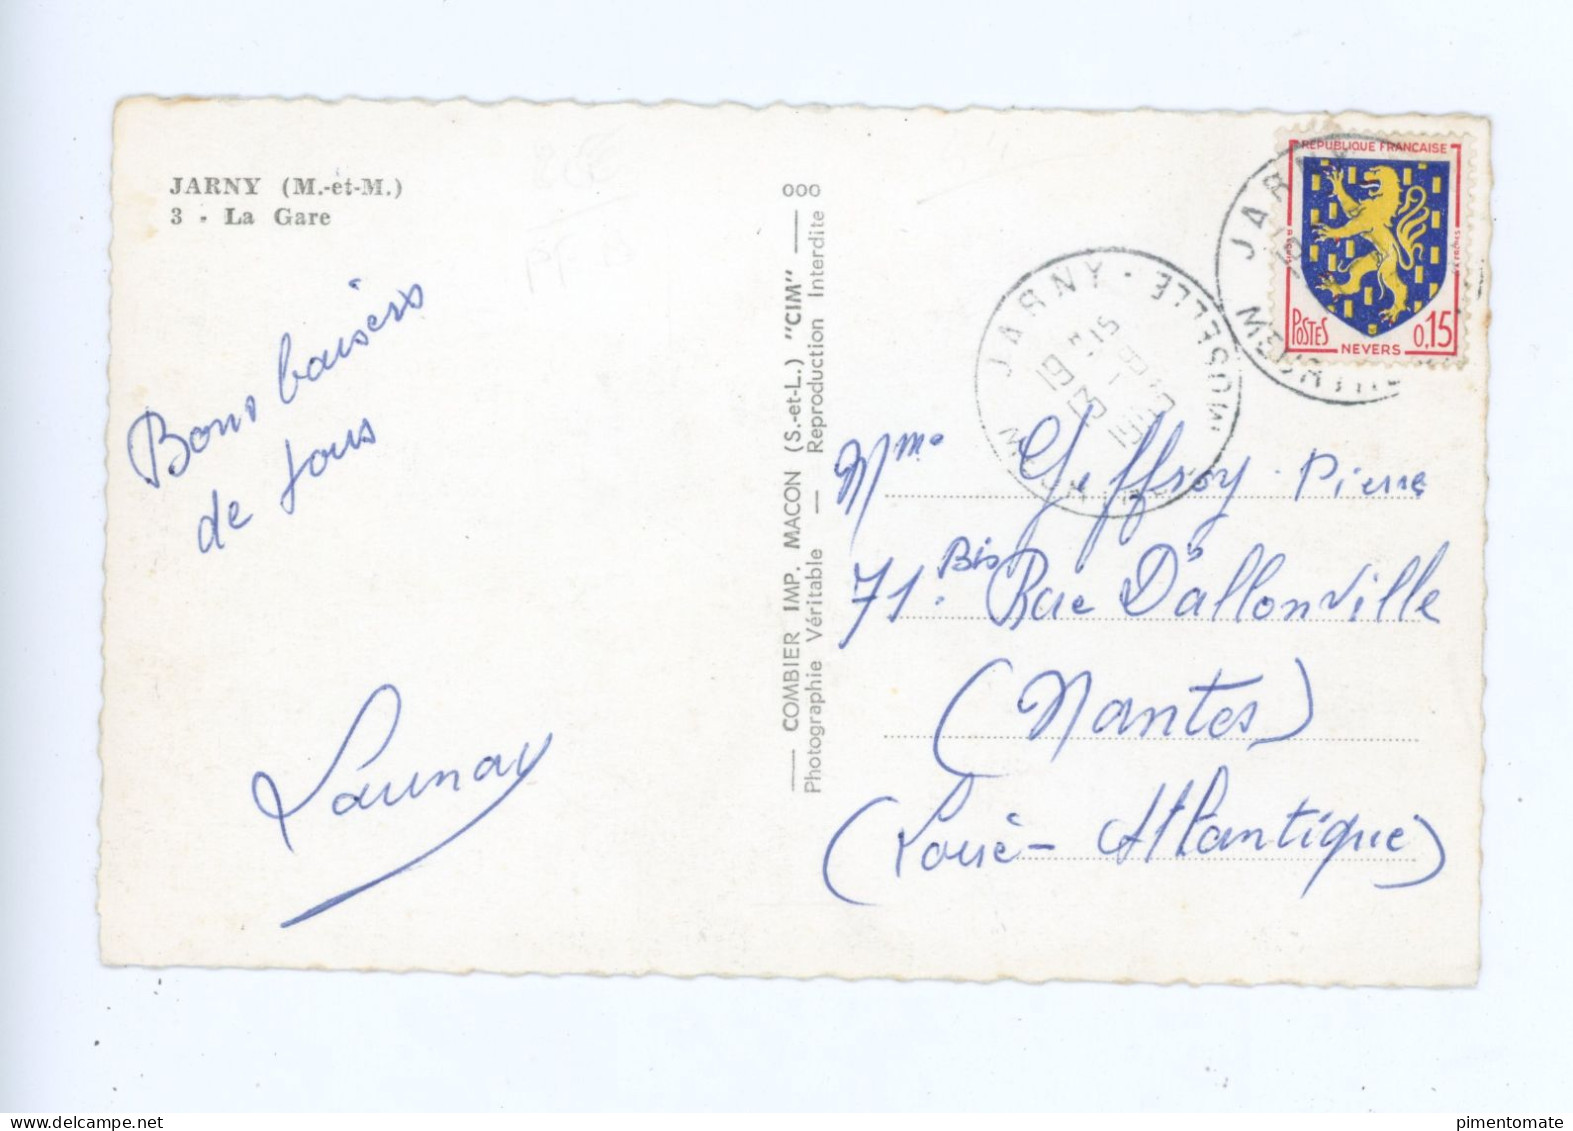 JARNY (M.-et-M.)
3 - La Gare
Bons baisers
de tous
Launay
COMBIER IMP. MACON (S.-et-L.) "CIM"
Photographie Véritable — Reproduction Interdite
000
JARNY - MOSELLE
19 H 15
13 - 8
JARNY
MEURTHE
RÉPUBLIQUE FRANCAISE
POSTES 0,15
NEVERS
Mme Geffroy Pierre
71 Bis Rue D'allonville
(Nantes)
(Loire-Atlantique)
pimentomate